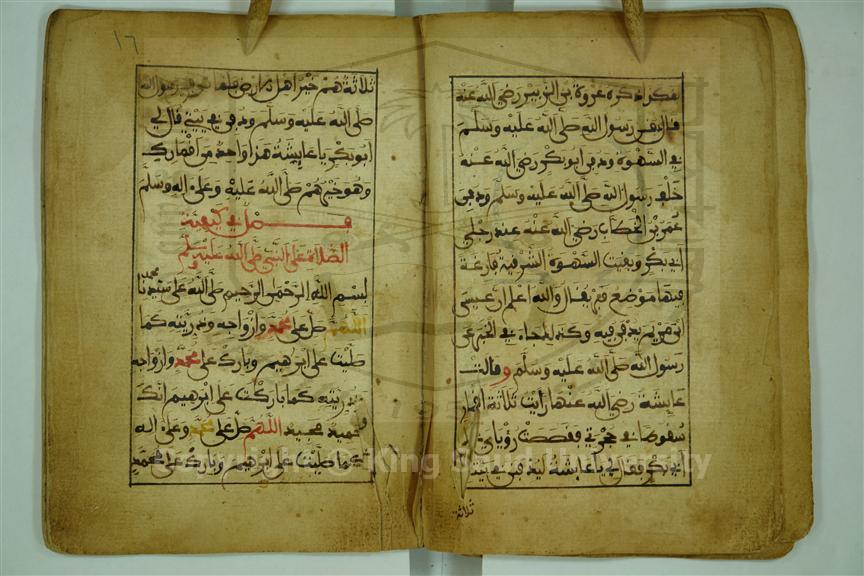 هكذا ذكره عروة بن الزبير رضي الله عنه
قال دفن رسول الله صلى الله عليه وسلم
في السهوة ودفن أبو بكر رضي الله عنه
خلف رسول الله صلى الله عليه وسلم ودفن
عمر بن الخطاب رضي الله عنه عند رجلي
أبي بكر وبقيت السهوة الشرقية فارغة
فيها موضع قبر يقال والله اعلم ان عيسى
ابن مريم يدفن فيه وكذلك جاء في الخبر عن
رسول الله صلى الله عليه وسلم وقالت
عائشة رضي الله عنها رأيت ثلاثة اقمار
سقوطا في حجرتي فقصصت رؤياي على
أبي بكر فقال لي يا عائشة ليدفنن في بيتك
ثلاثة
١٦
ثلاثة هم خير اهل الارض فلما توفي رسول الله
صلى الله عليه وسلم ودفن في بيتي قال لي
أبو بكر يا عايشة هذا واحد من اقمارك
وهو خيرهم صلى الله عليه وعلى اله وسلم
فصل في كيفية
الصلاة على النبي صلى الله عليه وسلم
بسم الله الرحمن الرحيم صلى الله على سيدنا محمد
اللهم صل على محمد وازواجه وذريته كما
صليت على ابرهيم وبارك على محمد وازواجه
وذريته كما باركت على ابرهيم انك
حميد مجيد اللهم صل على محمد وعلى اله
كما صليت على ابرهيم وبارك على محمد
Copyright © King Saud University